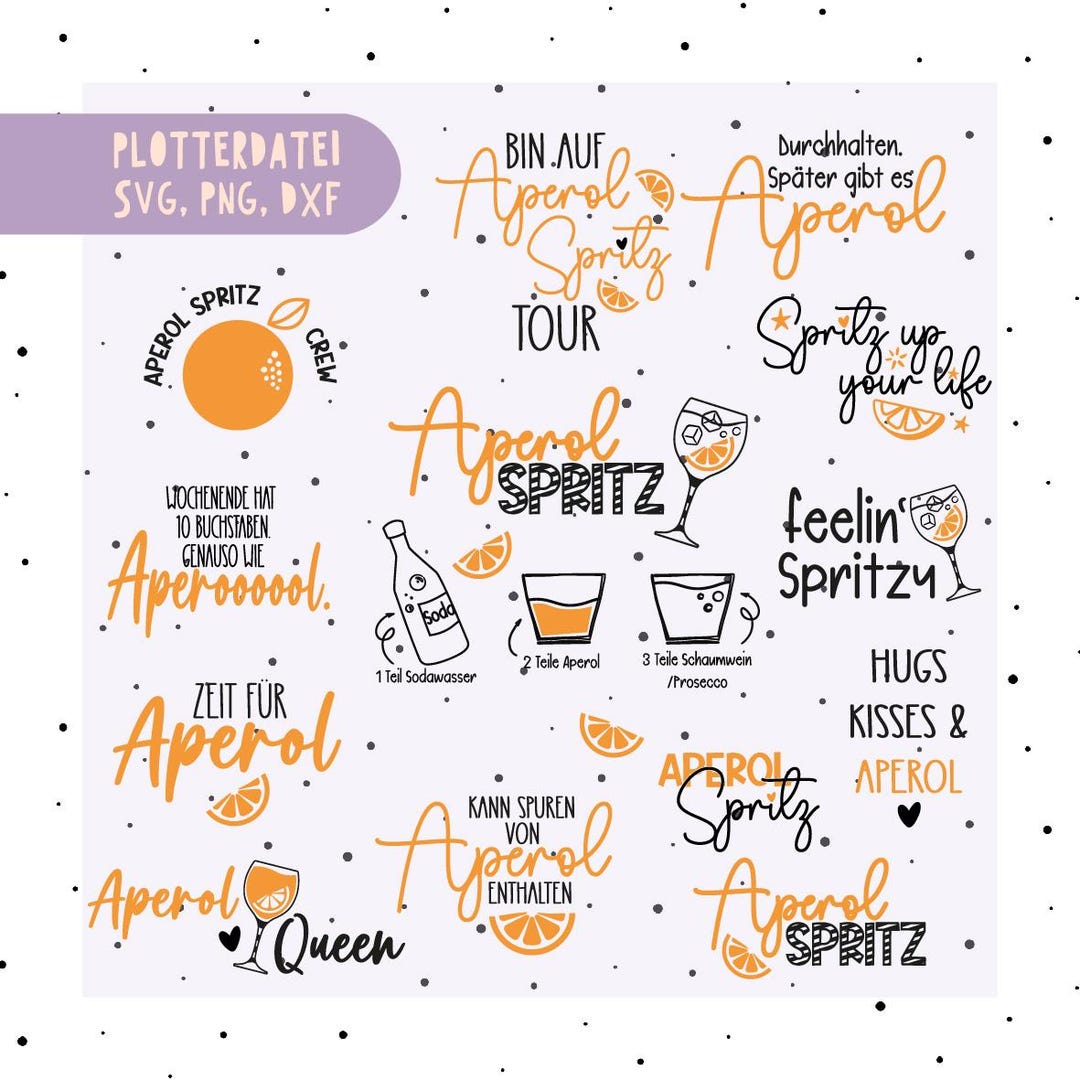 PLOTTERDATEI
SVG, PNG, DXF
BIN AUF
Aperol
Spritz
TOUR
Durchhalten.
Später gibt es
Aperol
APEROL SPRITZ CREW
Spritz up
your life
Aperol
SPRITZ
WOCHENENDE HAT
10 BUCHSTABEN.
GENAUSO WIE
Aperoooool.
feelin'
Spritzy
Soda
1 Teil Sodawasser
2 Teile Aperol
3 Teile Schaumwein
/Prosecco
HUGS
KISSES &
APEROL
ZEIT FÜR
Aperol
APEROL
Spritz
KANN SPUREN
VON
Aperol
ENTHALTEN
Aperol
Queen
Aperol
SPRITZ